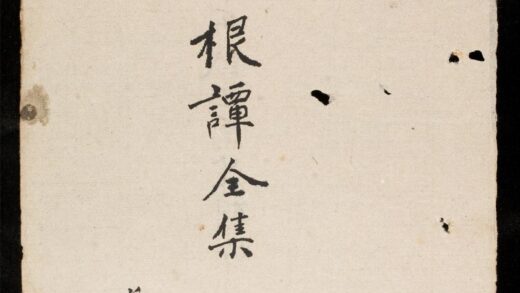 根譚全集